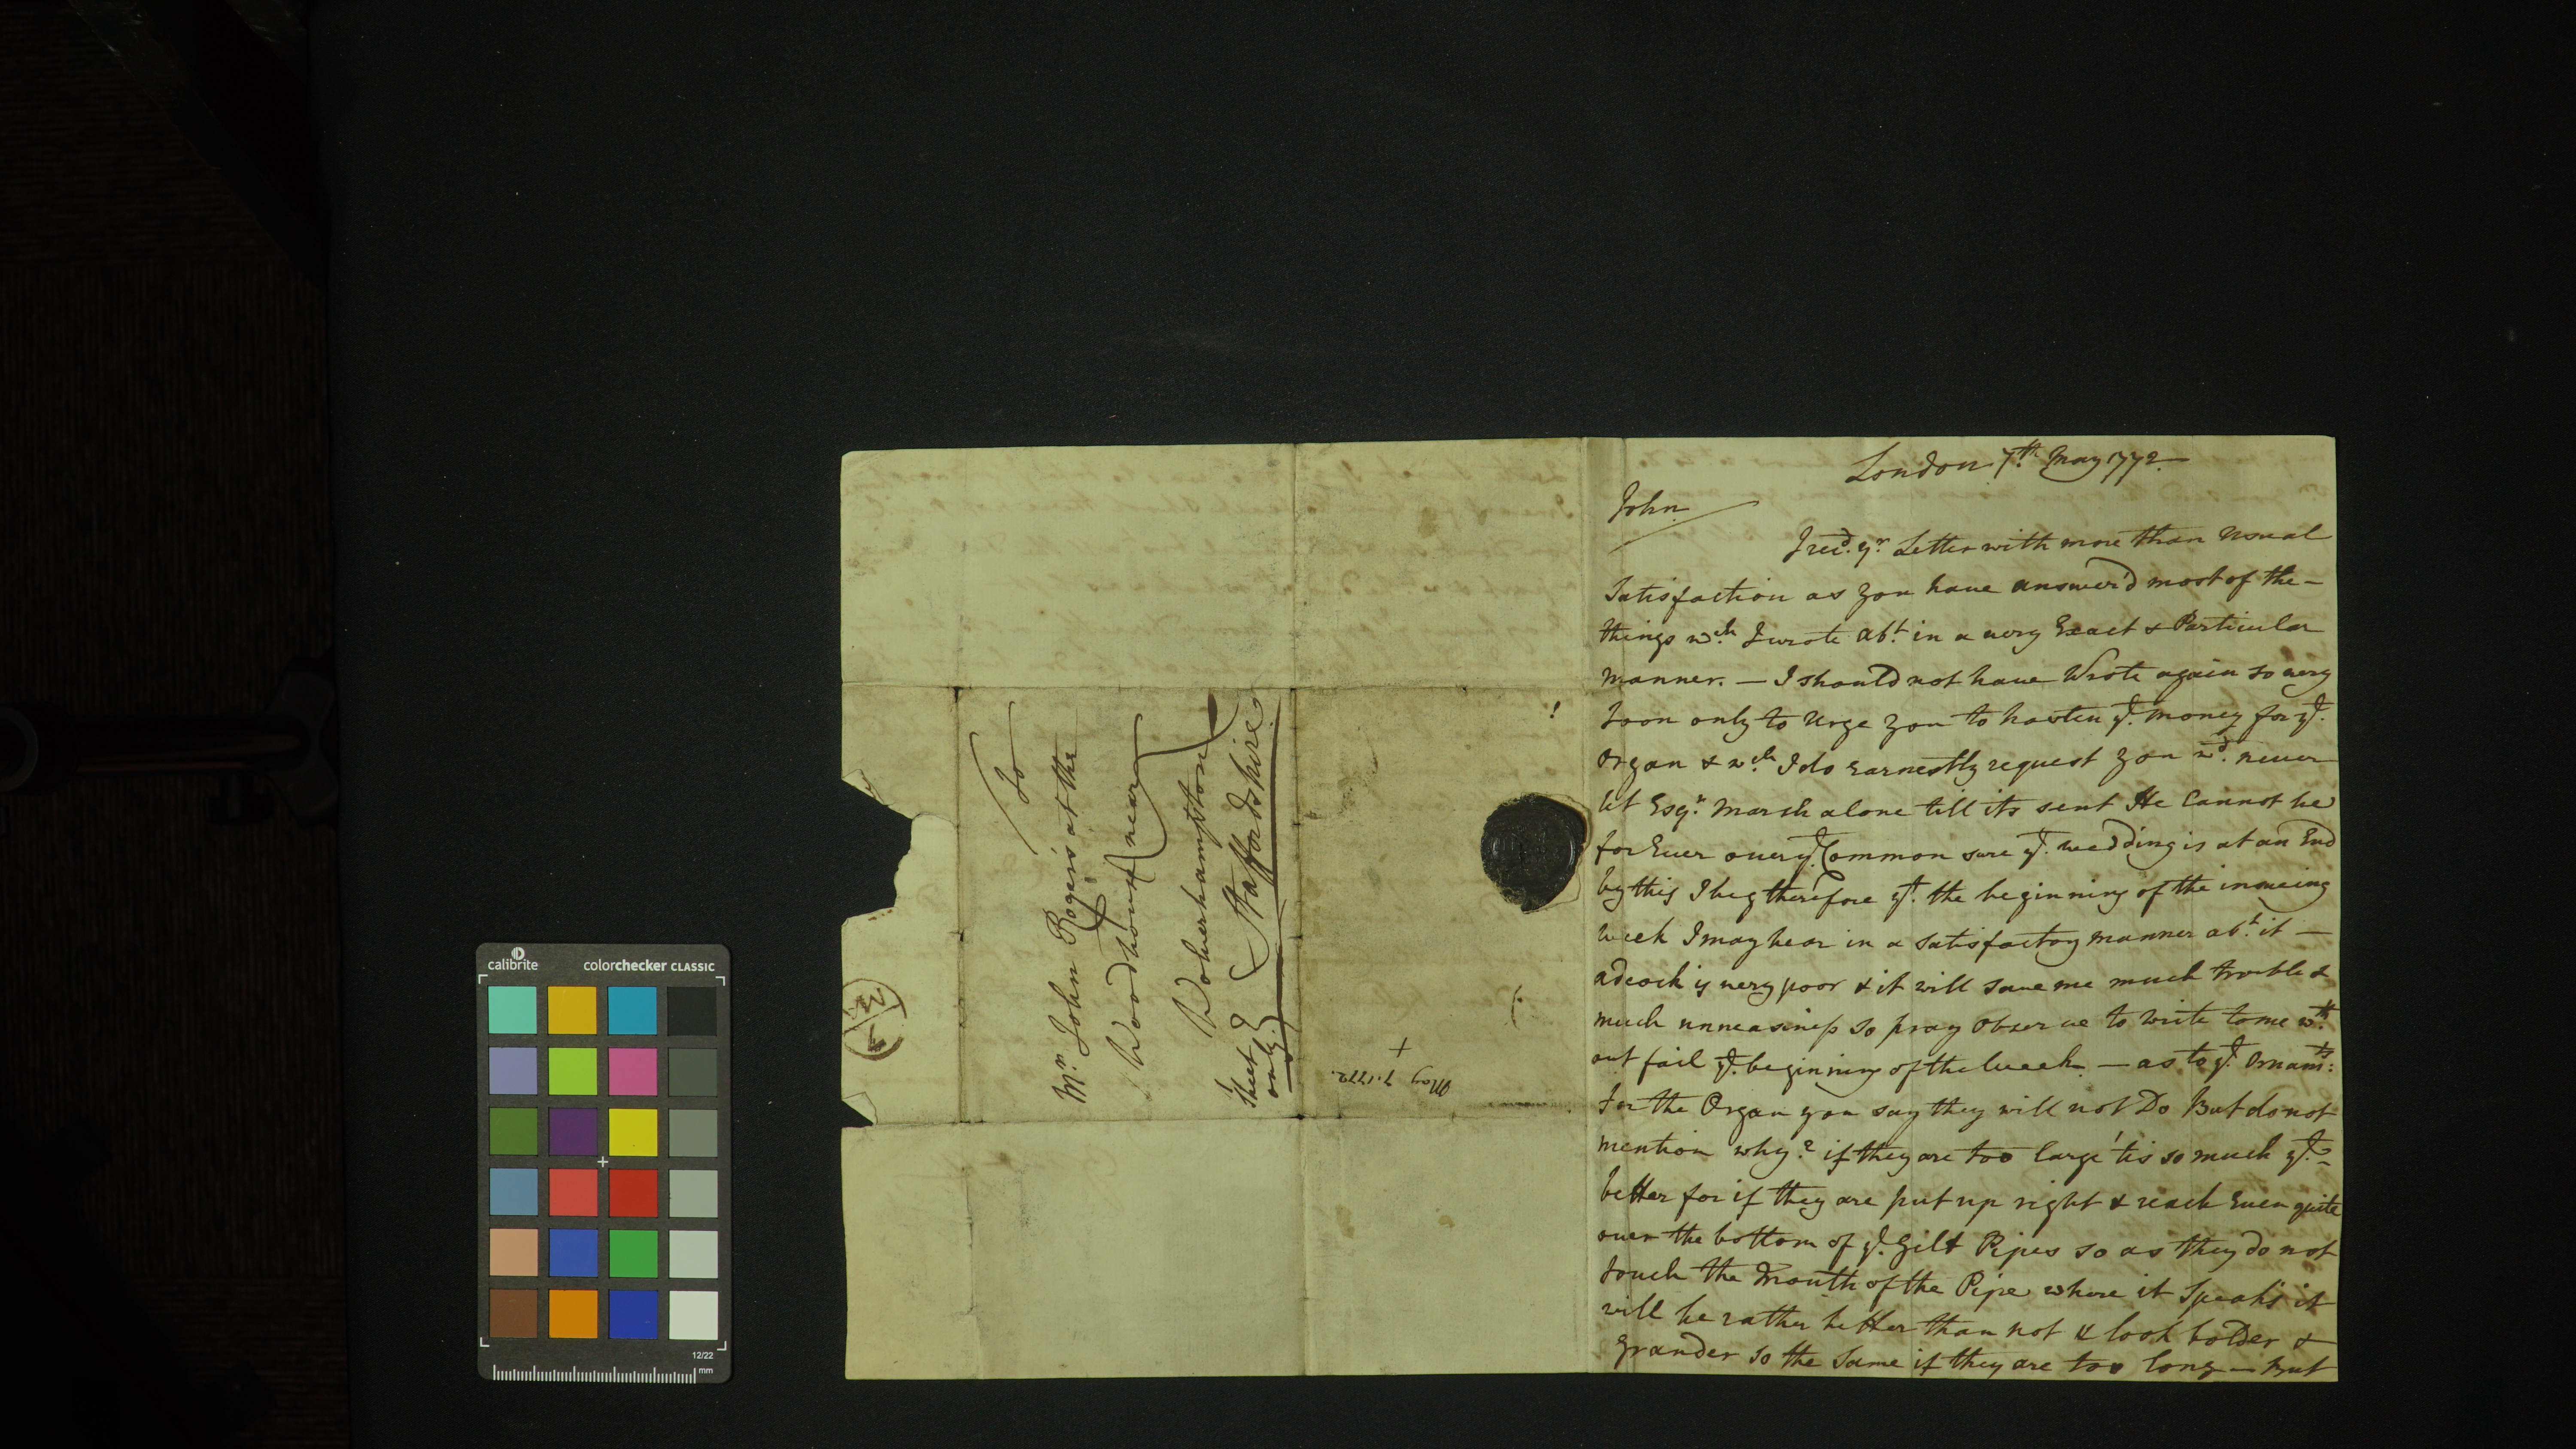 London 7th. May 1772.
John
I recd. yr. Letter with more than usual
Satisfaction as you have answer'd most of the -
things wch. I wrote abt. in a very Exact & Particular
manner. — I should not have Wrote again so very
soon only to Urge you to hasten ye. money for ye.
Organ & wch. I do earnestly request you wd. never
let Esqr. Marsh alone till its sent He Cannot be
for Ever over ye. Common sure ye. wedding is at an End
by this I beg therefore yt. the beginning of the
week I may hear in a satisfactory manner abt. it —
adcock is very poor & it will save me much trouble &
much unneasiness so pray observe to write to me wth.
out fail ye. beginning of the week. — as to ye. Ornamts:
for the Organ you say they will not Do But do not
mention why? if they are too large 'tis so much ye. -
better for if they are put up right & reach Even quite
over the bottom of ye. Gilt Pipes so as they do not
touch the Mouth of the Pipe where it Speaks it
will be rather better than not & look bolder &
Grander so the same if they are too long — But
To
Mr. John Rogers at the
Woodhouse near
Wolverhampton
Staffordshire.
Sheet
only.
May 7. 1772.
calibrite
colorchecker CLASSIC
12/22
mm